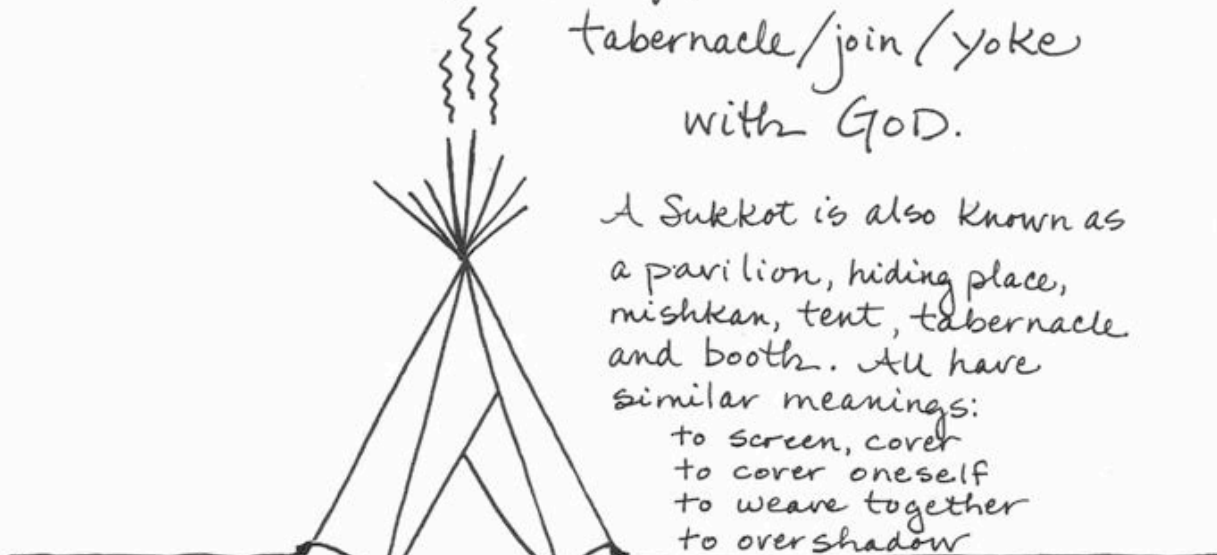 tabernacle/join/yoke
with GOD.
A Sukkot is also known as
a pavilion, hiding place,
mishkan, tent, tabernacle
and booth. All have
similar meanings:
to screen, cover
to cover oneself
to weave together
to overshadow